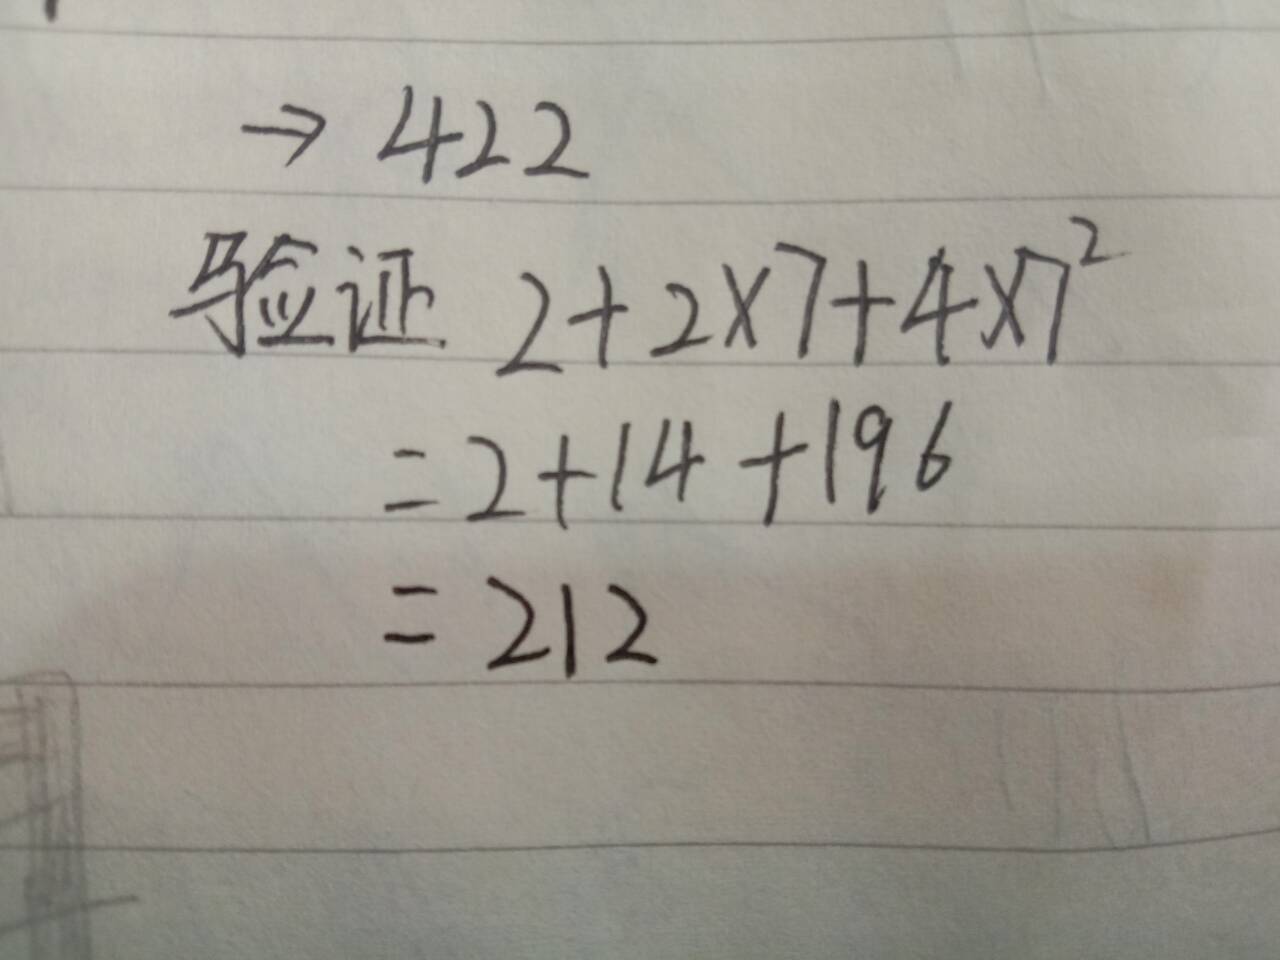 → 422
验证 2+2×7+4×7²
=2+14+196
=212